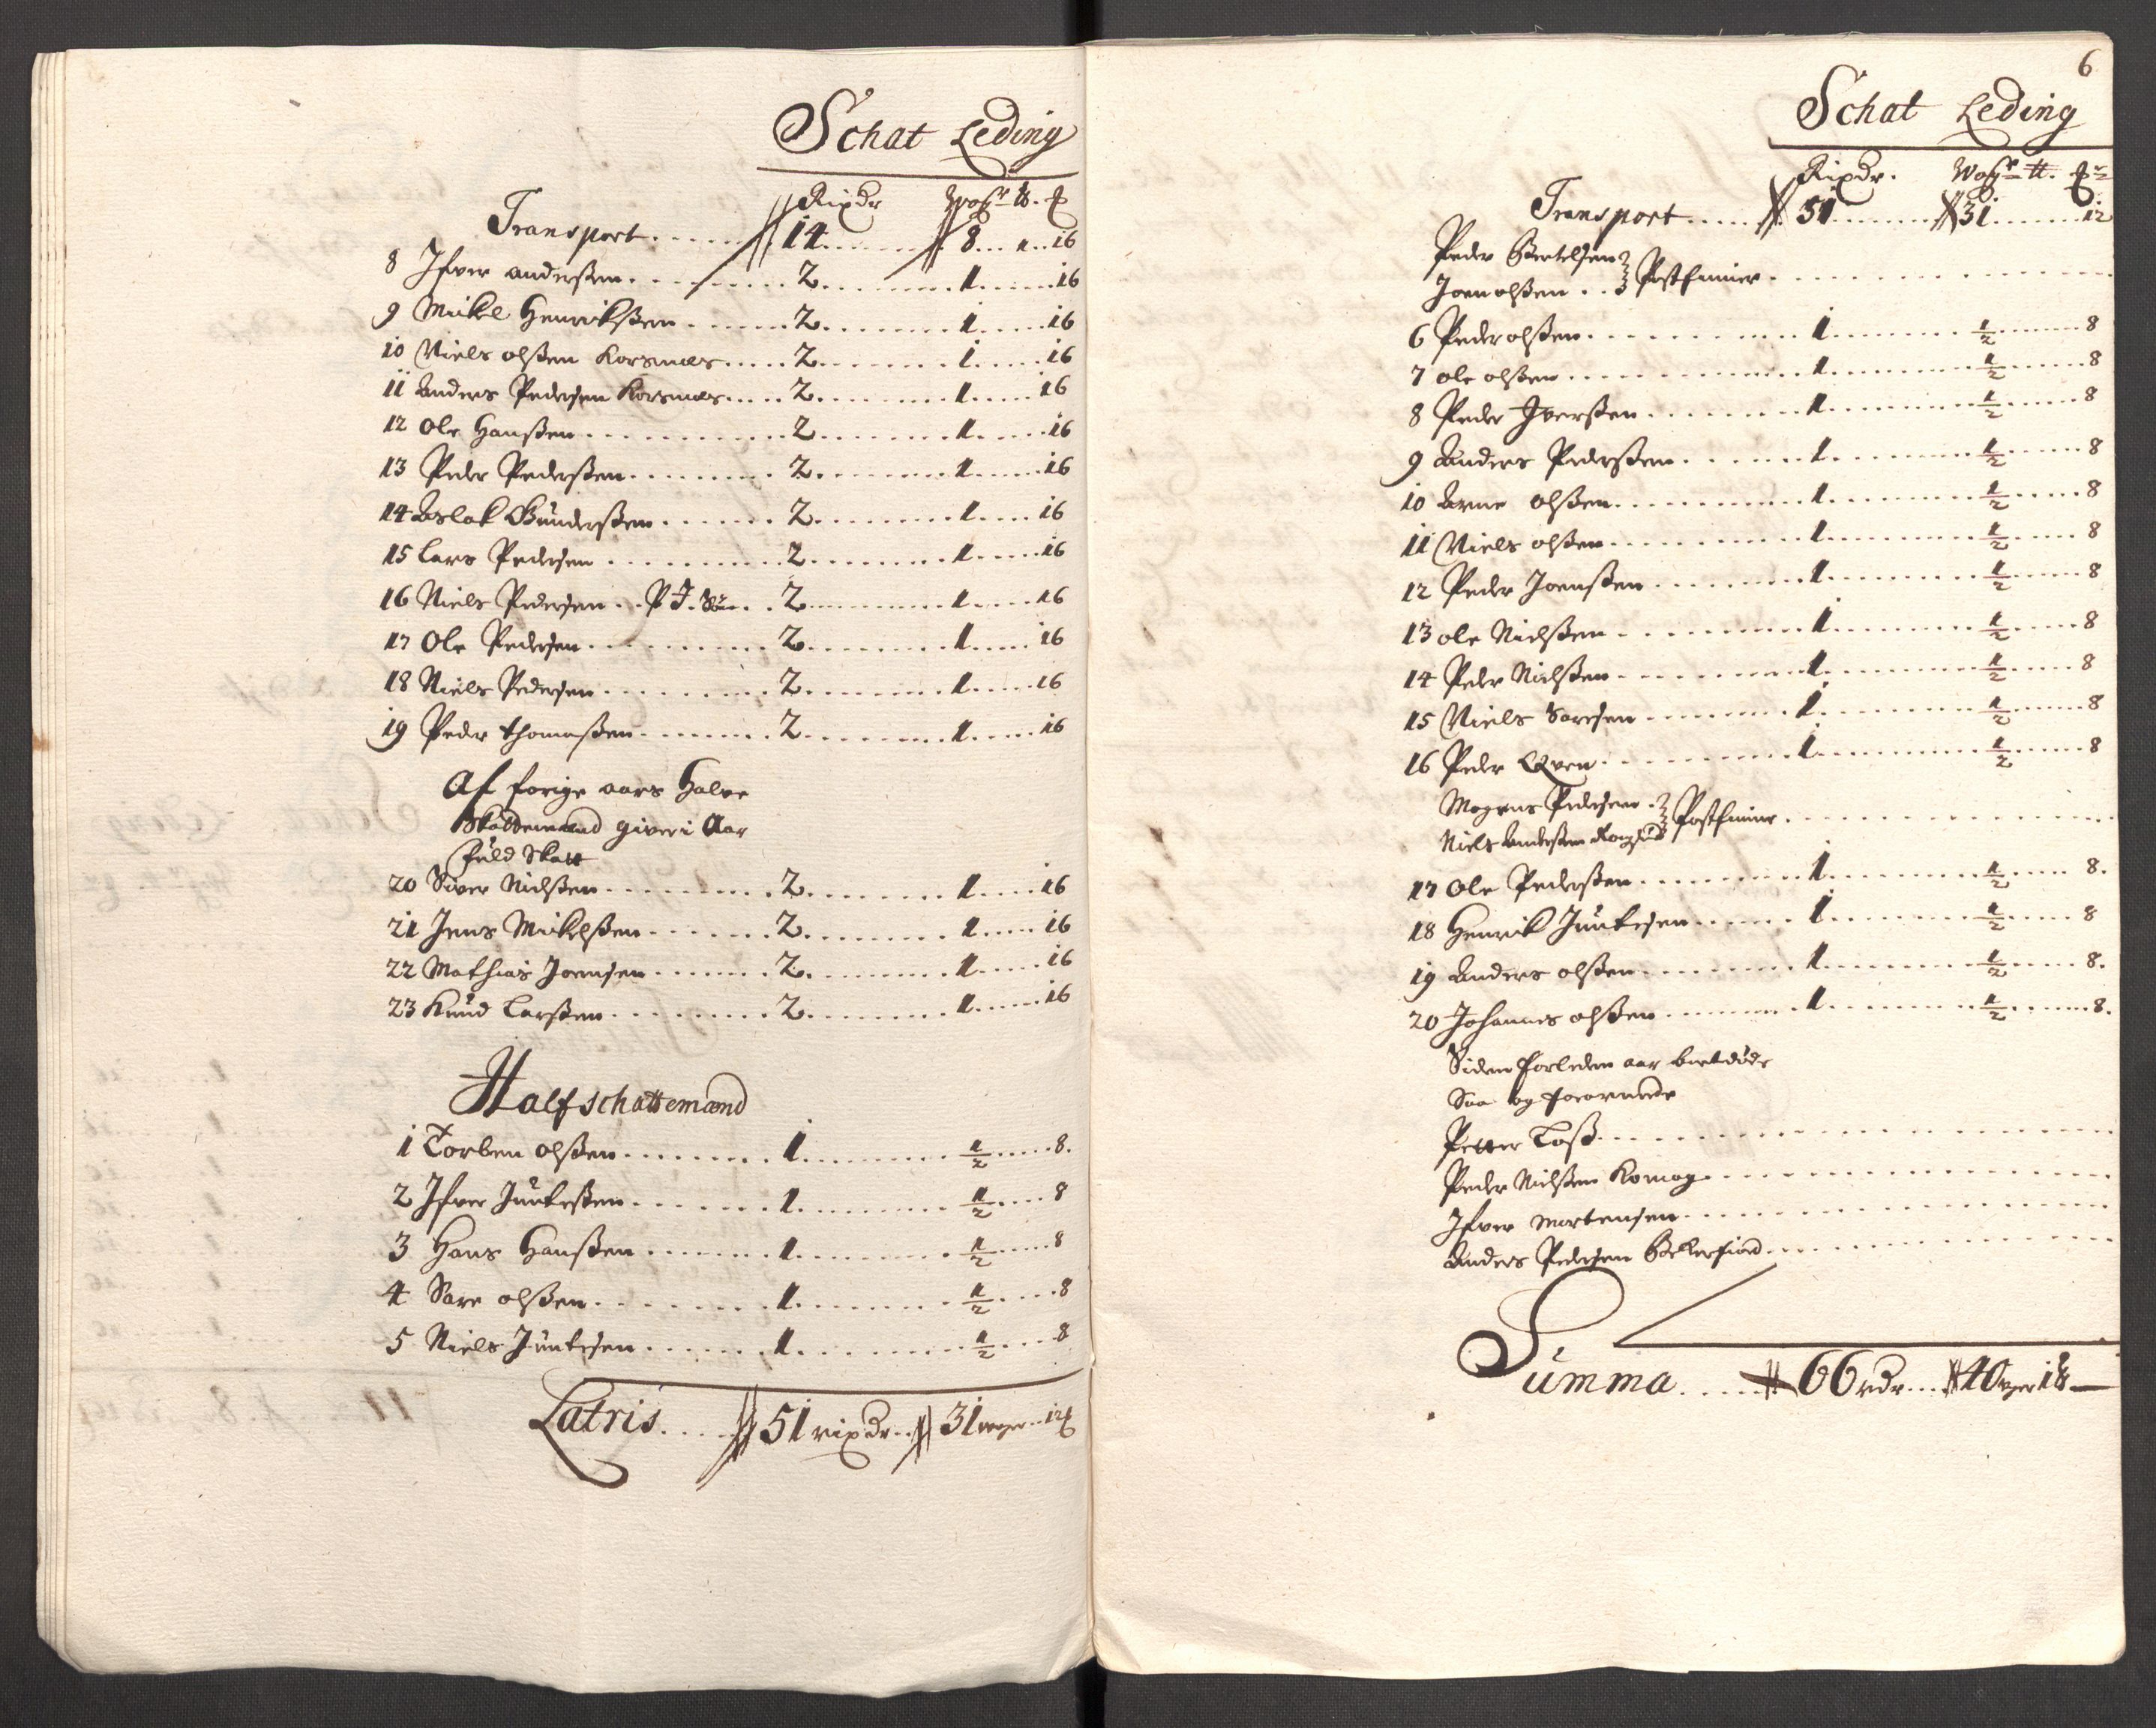 Schat Leding
Rixdr Wogr ... 
Transport 14 8 16
8 Ifver andersßen 2 1 16
9 Mickel Henrichßen 2 1 16
10 Niels olßen Korsnæs 2 1 16
11 Anders Pedersen Korsnæs 2 1 16
12 Ole Hanßen 2 1 16
13 Peder Pederßen 2 1 16
14 Aslak Gunderßen 2 1 16
15 Lars Pedersen 2 1 16
16 Niels Pedersen P I Søn 2 1 16
17 Ole Pedersen 2 1 16
18 Niels Pedersen 2 1 16
19 Peder thomaßen 2 1 16
Af forige aars Halve
Skattemænd giver i Aar
fuld Skatt
20 Siver Nielßen 2 1 16
21 Jens Mickelßen 2 1 16
22 Mathias Joensen 2 1 16
23 Knud Larßen 2 1 16
Half schattemænd
1 Torben olßen 1 1/2 8
2 Ifver Juntesßen 1 1/2 8
3 Hans Hanßen 1 1/2 8
4 Sare olßen 1 1/2 8
5 Niels Juntesen 1 1/2 8
Latris 51 rixdr 31 woger 12
6
Schat Leding
Rixdr. Wogr
Transport 51 31 12
Peder Bertelsen
Joen olßen Postfinner
6 Peder olßen 1 1/2 8
7 ole olßen 1 1/2 8
8 Peder Iverßen 1 1/2 8
9 Anders Pederßen 1 1/2 8
10 Arne olßen 1 1/2 8
11 Niels olßen 1 1/2 8
12 Peder Joenßen 1 1/2 8
13 ole Nielßen 1 1/2 8
14 Peder Nielßen 1 1/2 8
15 Niels Saresen 1 1/2 8
16 Peder Qven 1 1/2 8
Mogens Pedersen
Niels Anderßen Postfinner
17 Ole Pederßen 1 1/2 8
18 Henrik Juntesen 1 1/2 8
19 Anders olßen 1 1/2 8
20 Johannes olßen 1 1/2 8
Siden forleden aar bortdøde
Saa og foearmede
Petter Loß
Peder Nielßen Komag
Ifver Mortensen
Anders Pedersen Bellerfiord
Summa 66 rdr 40 woger 18